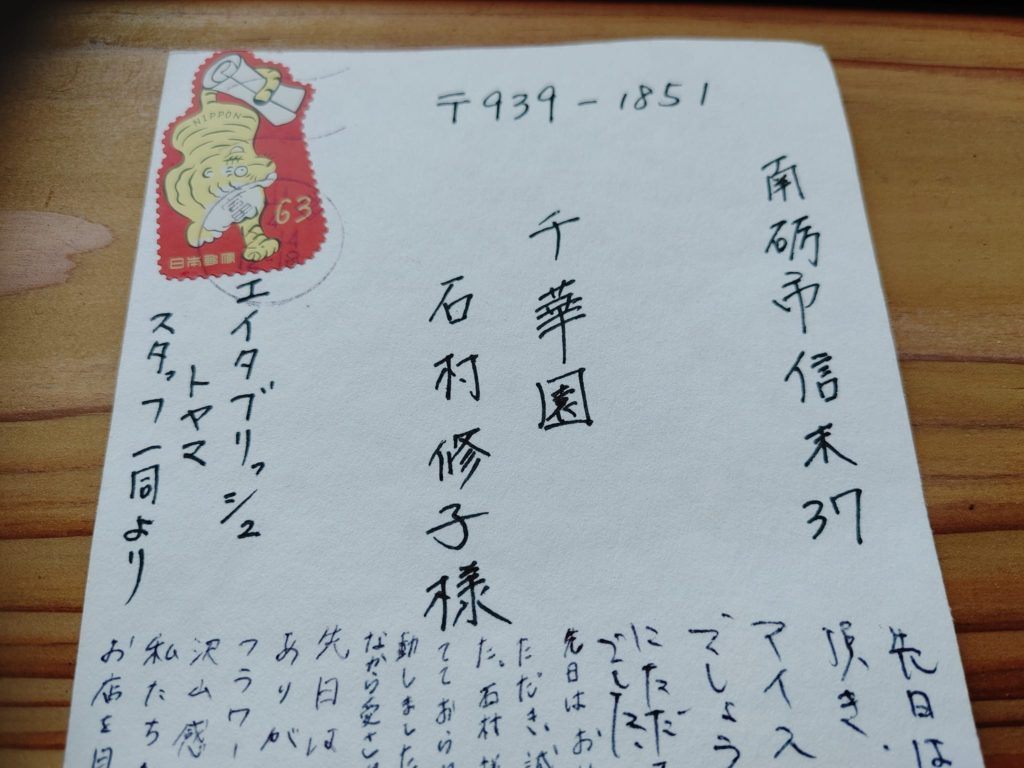 〒939-1851
南砺市信末37
千華園
石村修子様
NIPPON
63
日本郵便
エイタブリッシュ
トヤマ
スタッフ一同より
先日は
頂き、
アイス
でしょう
にただ
でした
先日は お
ただき、試
た。石村様
てておら
動しました
ながら愛さ
先日は
ありが
フラワー
沢山感
私たち
お店を目